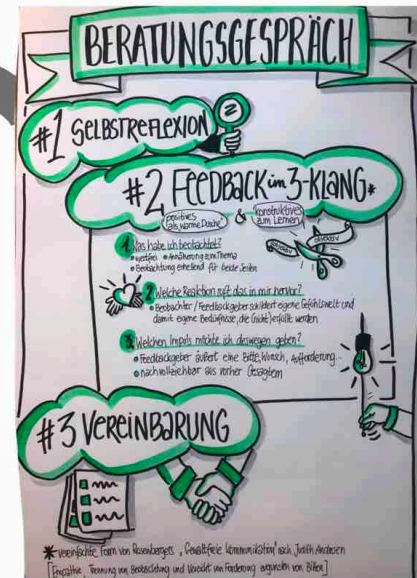 BERATUNGSGESPRÄCH
#1 SELBSTREFLEXION
#2 FEEDBACK im 3-KLANG*
positives als „warme Dusche" & konstruktives zum Lernen
1. Was habe ich beobachtet?
• wertfrei • Annäherung zum Thema
• Beobachtung erhellend für beide Seiten
objektiv
2. Welche Reaktion ruft das in mir hervor?
• Beobachter / Feedbackgeber schildert eigene Gefühlswelt und
damit eigene Bedürfnisse, die (nicht) erfüllt werden
3. Welchen Impuls möchte ich deswegen geben?
• Feedbackgeber äußert eine Bitte, Wunsch, Aufforderung...
• nachvollziehbar aus vorher Gesagtem
#3 VEREINBARUNG
* vereinfachte Form von Rosenbergers „Gewaltfreie Kommunikation" nach Judith
[Empathie, Trennung von Beobachtung und Verzicht von Forderung zugunsten von Bitten]